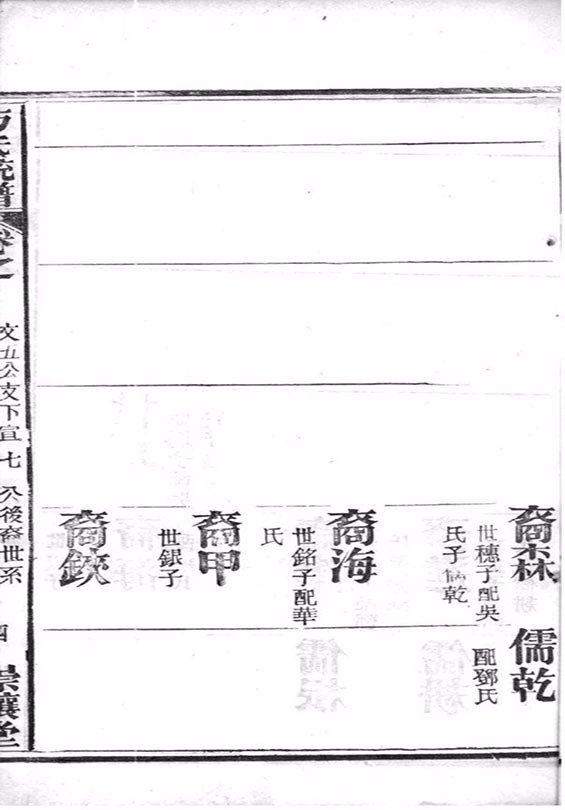 裔森
世穗子配吳
氏子儒乾
儒乾
配鄧氏
裔海
世銘子配華
氏
裔甲
世銀子
裔鋏
氏統譜
卷之
文五公支下宣七公後裔世系
四
崇讓堂